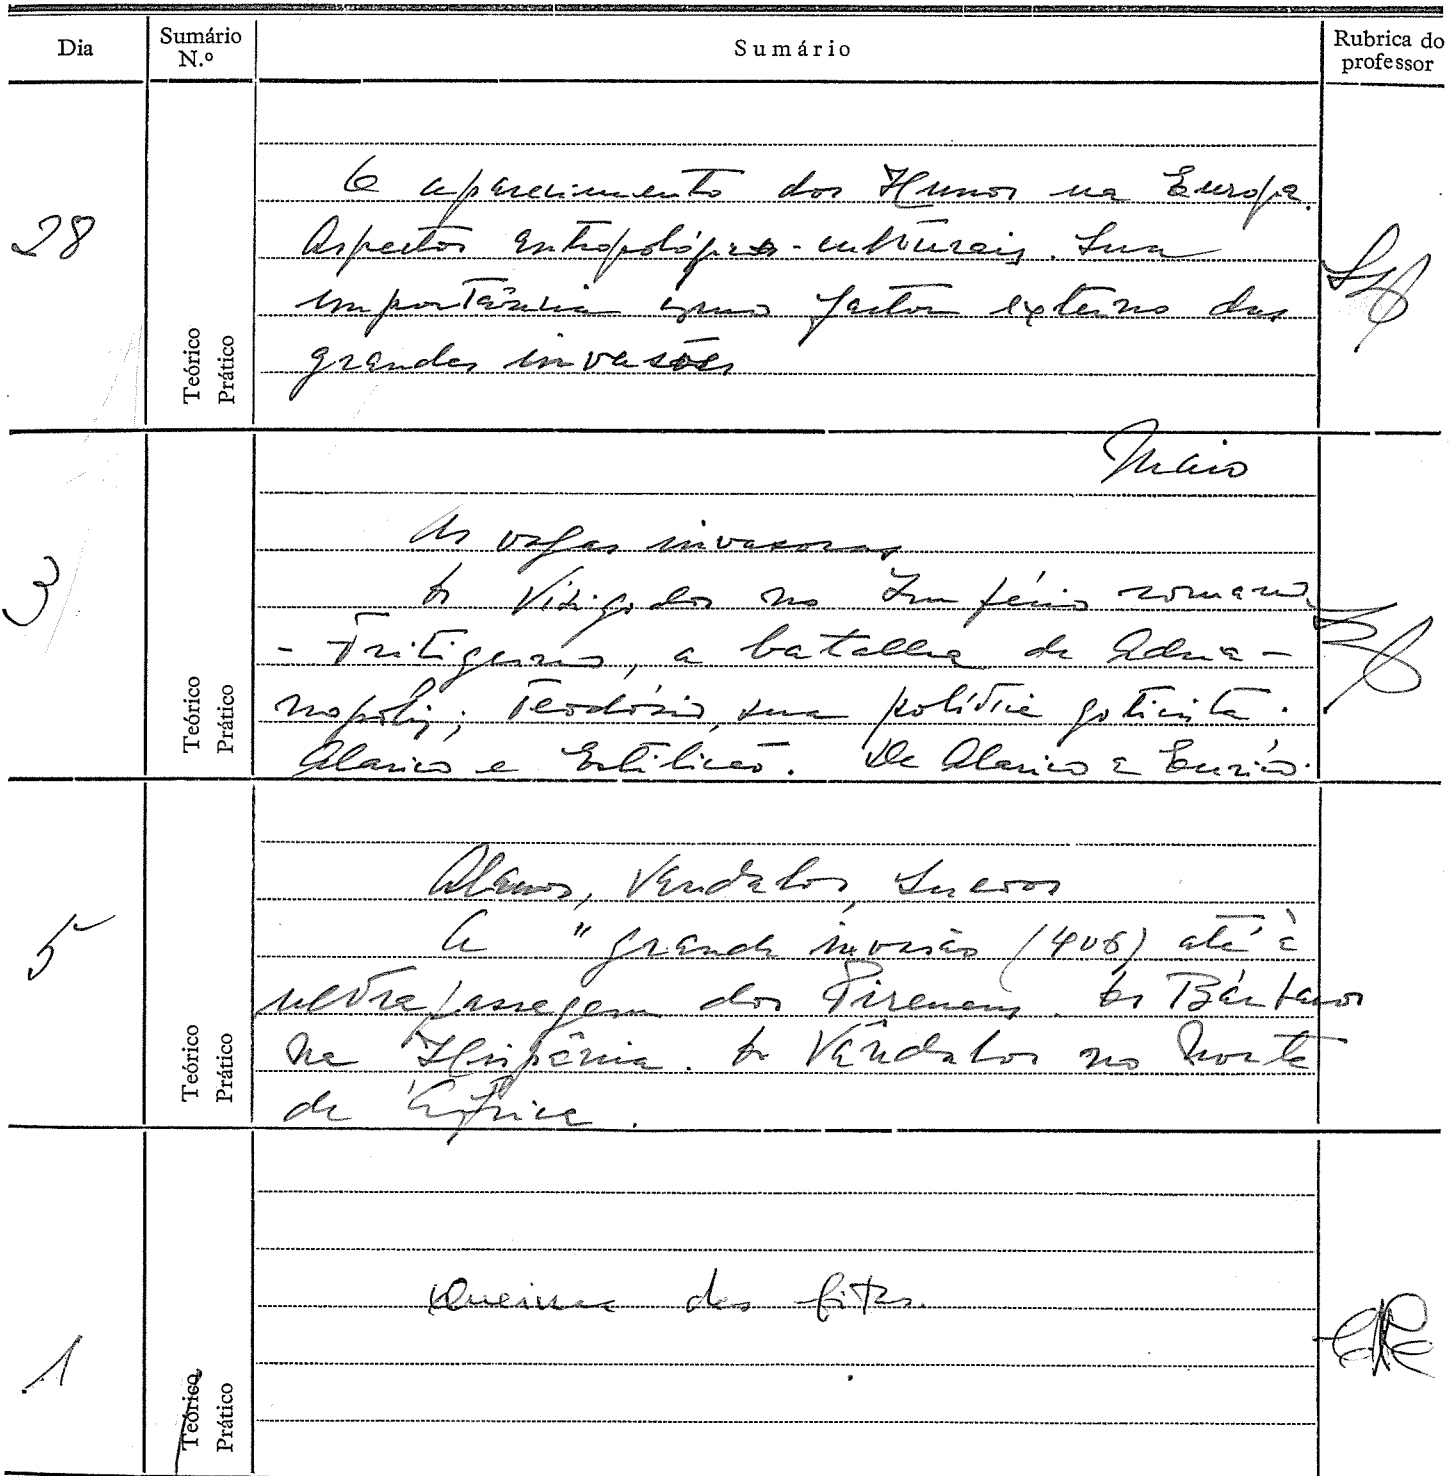 Dia
Sumário
N.º
Sumário
Rubrica do
professor
28
Teórico
Prático
O aparecimento dos Hunos na Europa.
Aspectos antropológicos-culturais. Sua
importância como factor externo das
grandes invasões
Maio
3
Teórico
Prático
As vagas invasoras
Os Visigodos no Império romano
- Fritigerno, a batalha de Adria-
nopolis; Teodósio, sua política goticista.
Alarico e Estilicão. De Alarico a Eurico.
5
Teórico
Prático
Alanos, Vandalos, Suevos
A "grande invasão (406) até à
ultrapassagem dos Pireneus. Os Bárbaros
na Hispânia. Os Vândalos no Norte
de África.
1
Teórico
Prático
Queima das fitas.